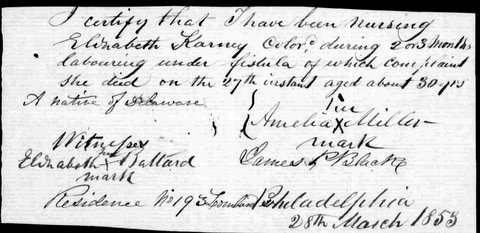 I certify that I have been nursing
Elizabeth Karney Colord during 2 or 3 months
labouring under fistula of which complaint
she died on the 27th instant aged about 30 yrs
A native of Delaware
her
Amelia X Miller
mark
Witnesses
Elizabeth X Ballard
mark
James P Black
Residence No 193 Lombard Philadelphia
28th March 1853